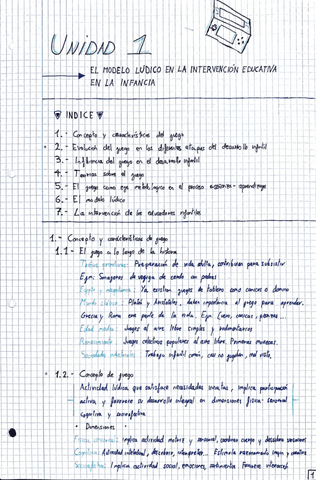 UNIDAD 1
EL MODELO LÚDICO EN LA INTERVENCIÓN EDUCATIVA
EN LA INFANCIA
INDICE
1.- Concepto y características del juego
2.- Evolución del juego en las diferentes etapas del desarrollo infantil
3.- Influencia del juego en el desarrollo infantil
4.- Teorías sobre el juego
5.- El juego como eje metodológico en el proceso enseñanza-aprendizaje
6.- El modelo lúdico
7.- La intervención de los educadores infantiles
1.- Concepto y características de juego
1.1- El juego a lo largo de la historia
Preparación de vida adulta, contribuían para subsistir
Ejm:
Ya existían juegos de tablero como
Mundo clásico: Platón y Aristóteles, daban importancia al juego para aprender.
Grecia y Roma era parte de la vida. Ejm
Edad media: Juegos al aire libre simples y rudimentarios
Renacimiento: Juegos colectivos populares al aire libre. Primeras muñecas.
Sociedades industriales: Trabajo infantil común, casi no jugaban, mal visto.
1.2.- Concepto de juego
Actividad lúdica que satisface necesidades innatas, implica participación
activa, y favorece su desarrollo integral en dimensiones física-sensorial
cognitiva y socioafectiva
Dimensiones
implica actividad motora y sensorial,
Cognitiva: Actividad intelectual, descubrir,
Socioafectiva: Implica actividad social, emociones, sentimientos
1